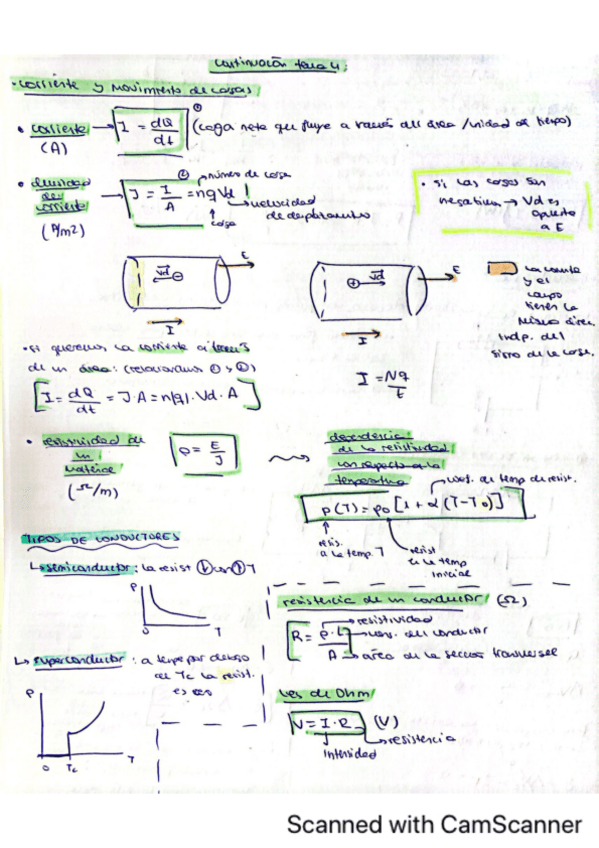 continuación tema 4:
• corriente y movimiento de cargas/
• corriente → I = dQ/dt ① (carga neta que fluye a través del área /unidad de tiempo)
(A)
• densidad de corriente → J = I/A = nqVd ②
número de carga
carga
velocidad de desplazamiento
(A/m2)
• Si las cargas son
negativas → Vd es
opuesto
a E
E
Vd
I
E
Vd
I
la corriente
y el
campo
tienen la
misma direc.
indp. del
signo de la carga.
• si queremos la corriente a través
de un área: (relacionamos ① y ②)
I = dQ/dt = J·A = n|q|·Vd·A
I = Nq/t
• resistividad de
un
material
(Ω/m)
ρ = E/J
dependencia
de la resistividad
con respecto a la
temperatura
coef. de temp de resist.
ρ(T) = ρ0 [1 + α(T-T0)]
resis.
a la temp. T
resist
a la temp
inicial
TIPOS DE CONDUCTORES
↳ semiconductor: la resist ↓ con ↑ T
ρ
0
T
↳ superconductor: a tempe por debajo
de Tc la resist.
es cero
ρ
0
Tc
T
resistencia de un conductor/ (Ω)
R = ρ·L/A
resistividad
long. del conductor
área de la sección transversal
Ley de Ohm/
V = I·R (V)
Intensidad
resistencia
Scanned with CamScanner